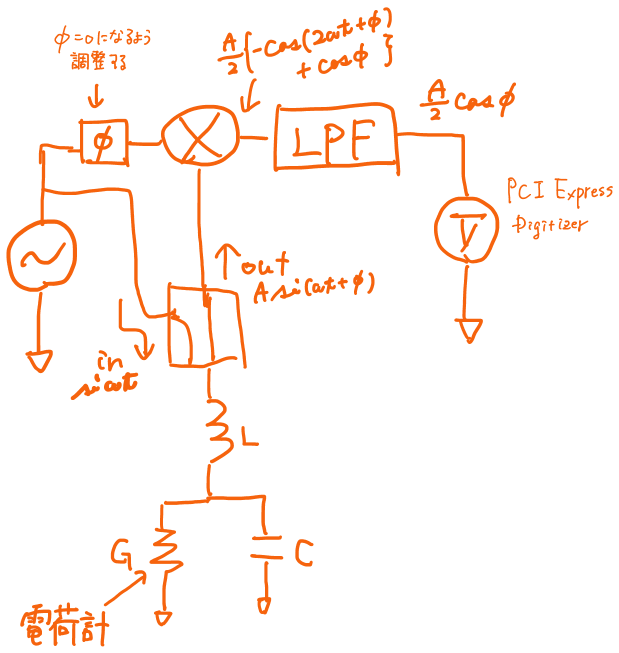 φ=0になるよう
調整する
A/2{-cos(2ωt+φ)
+cosφ}
φ
LPF
A/2 cosφ
V
PCI Express
Digitizer
out
A sin(ωt+φ)
in
sinωt
L
G
C
電荷計